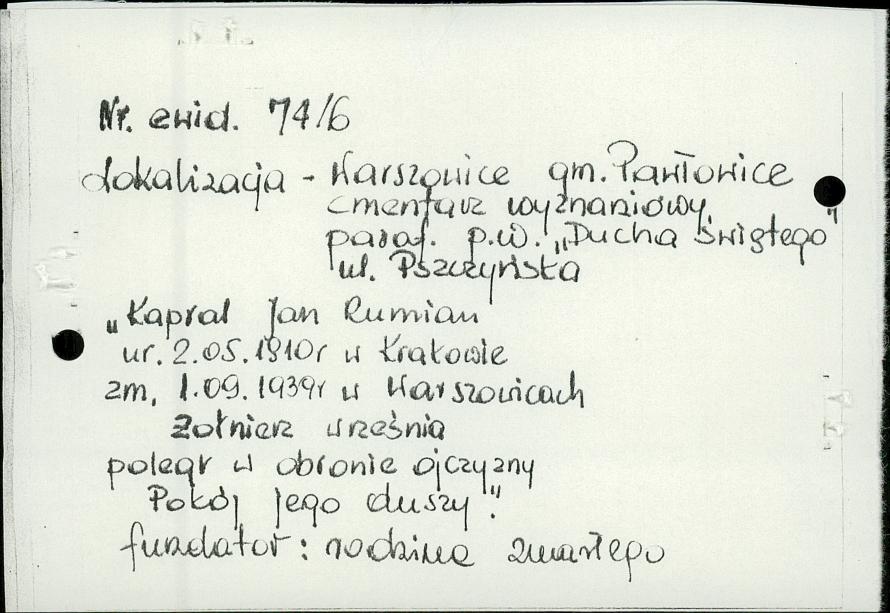 Nr. ewid. 74/6
Lokalizacja - Warszowice gm. Pawłowice
cmentarz wyznaniowy
paraf. p.w. „Ducha Świętego"
ul. Pszczyńska
„Kapral Jan Rumian
ur. 2.05.1910r w Krakowie
zm. 1.09.1939r w Warszowicach
Żołnierz września
poległ w obronie ojczyzny
Pokój jego duszy".
fundator: rodzina zmarłego